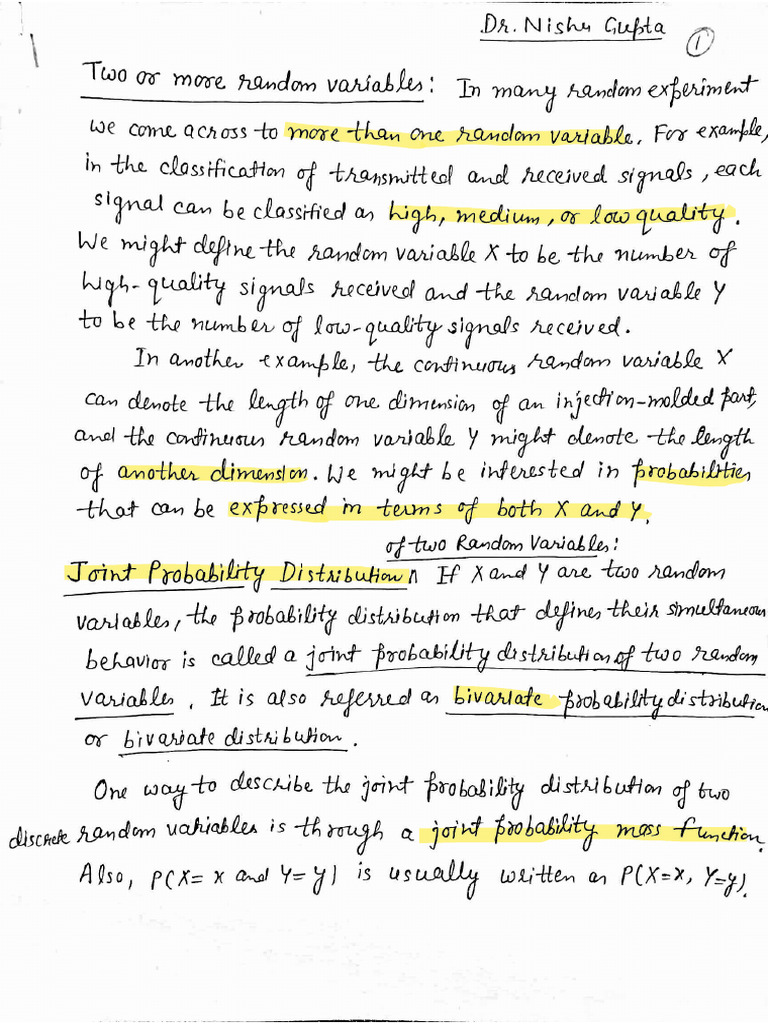 Dr. Nishu Gupta
1
Two or more random variables: In many random experiment
we come across to more than one random variable. For example,
in the classification of transmitted and received signals, each
signal can be classified as high, medium, or low quality.
We might define the random variable X to be the number of
high-quality signals received and the random variable Y
to be the number of low-quality signals received.
In another example, the continuous random variable X
can denote the length of one dimension of an injection-molded part,
and the continuous random variable Y might denote the length
of another dimension. We might be interested in probabilities
that can be expressed in terms of both X and Y.
of two Random Variables:
Joint Probability Distribution ∧ If X and Y are two random
variables, the probability distribution that defines their simultaneous
behavior is called a joint probability distribution of two random
variables. It is also referred as bivariate probability distribution
or bivariate distribution.
One way to describe the joint probability distribution of two
discrete random variables is through a joint probability mass function.
Also, P(X=x and Y=y) is usually written as P(X=x, Y=y).